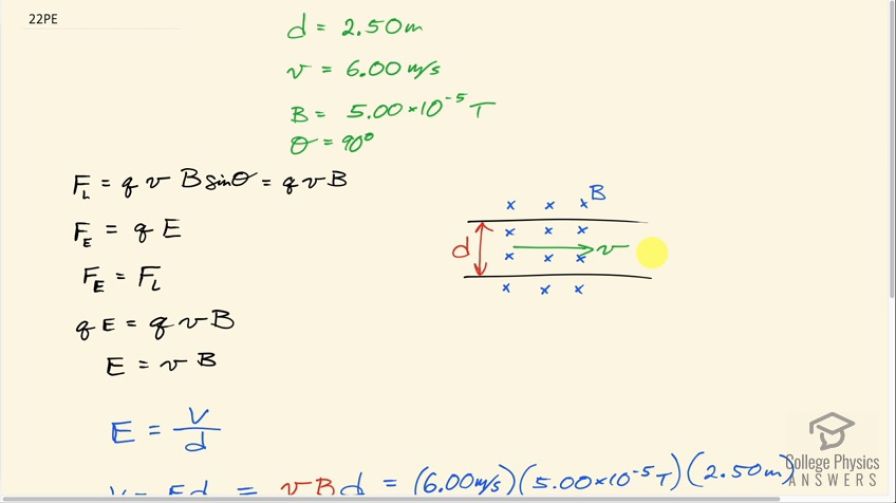 22PE
d = 2.50m
v = 6.00 m/s
B = 5.00×10⁻⁵ T
θ = 90°
F_L = q v B sinθ = q v B
F_E = q E
F_E = F_L
q E = q v B
E = v B
x x x B
x x x
d v
x x x
x x x
E = V/d
V = Ed = vBd = (6.00 m/s)(5.00×10⁻⁵ T)(2.50 m)
College Physics
ANSWERS